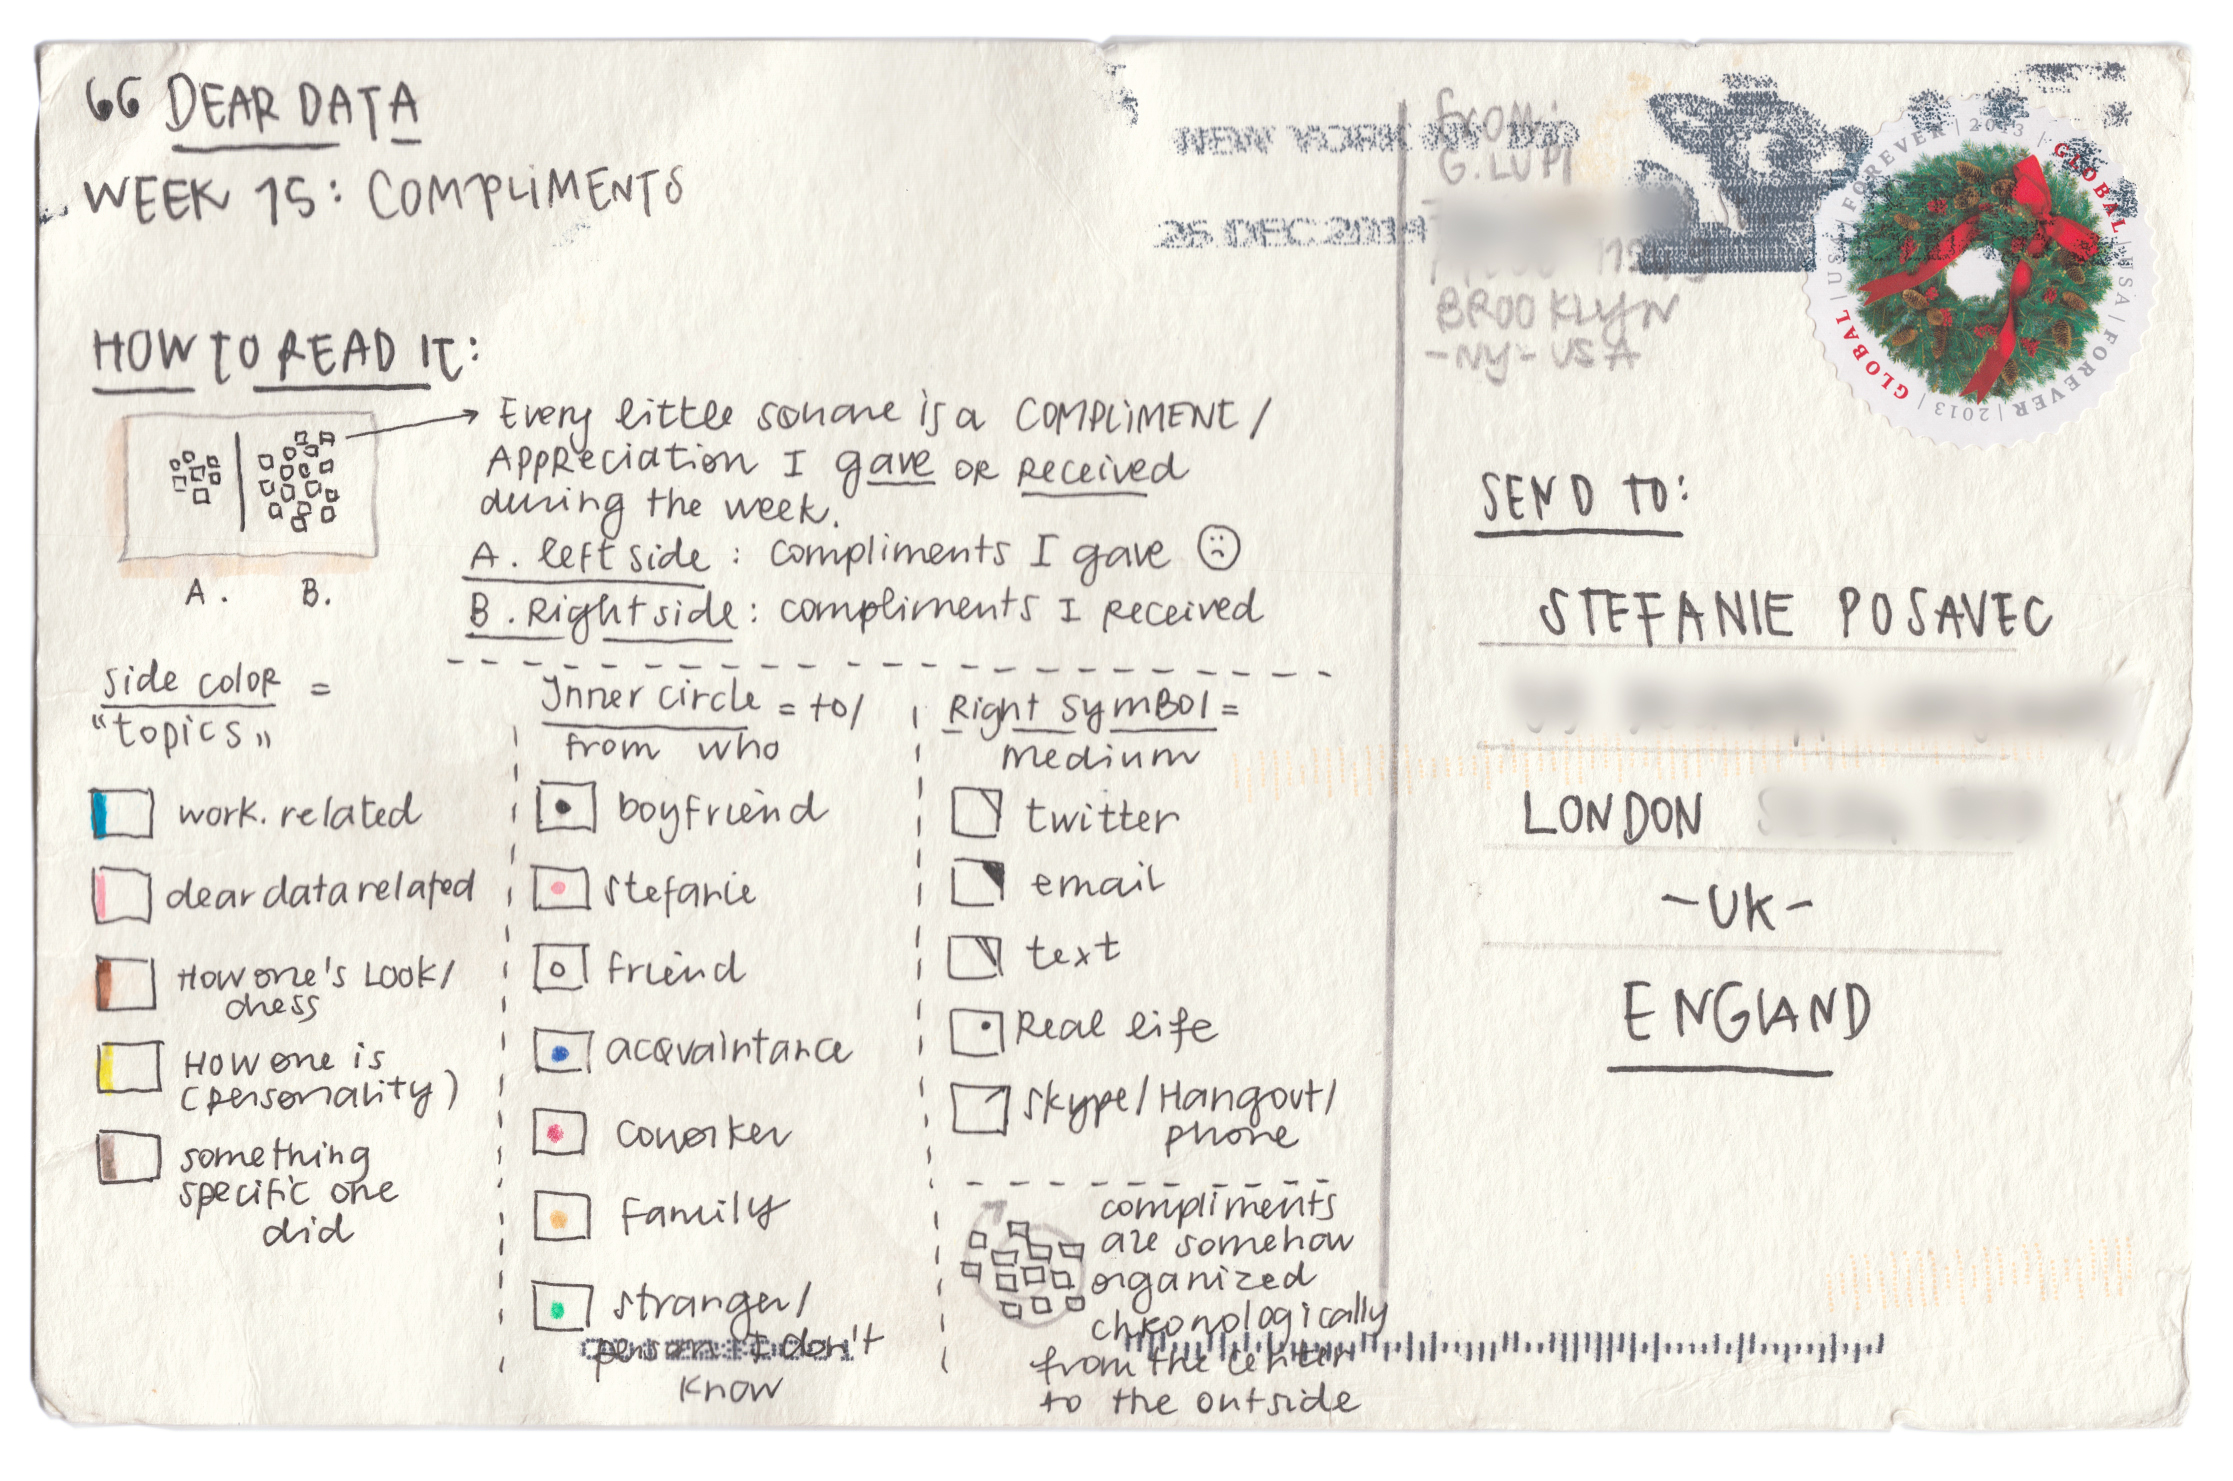 GG DEAR DATA
WEEK 15: COMPLIMENTS
HOW TO READ IT:
Every little square is a COMPLIMENT/
APPReciation I gave OR Received
during the week.
A. left side: compliments I gave ☹
B. Right side: compliments I received
A. B.
side color =
"topics"
work. related
dear data related
How one's LOOK/
dress
How one is
(personality)
something
specific one
did
Inner circle = to/
from who
boyfriend
stefanie
friend
acqvaintance
coworker
family
stranger/
person I don't
know
Right symBOl =
medium
twitter
email
text
Real life
skype/Hangout/
phone
compliments
are somehow
organized
chronologically
from the center
to the outside
NEW YORK NY 100
26 DEC 2014
From:
G. LUPI
BROOKLYN
-NY-USA
FOREVER | 2013 | GLOBAL | USA | FOREVER | 2013 | GLOBAL | USA
SEND TO:
STEFANIE POSAVEC
LONDON
-UK-
ENGLAND